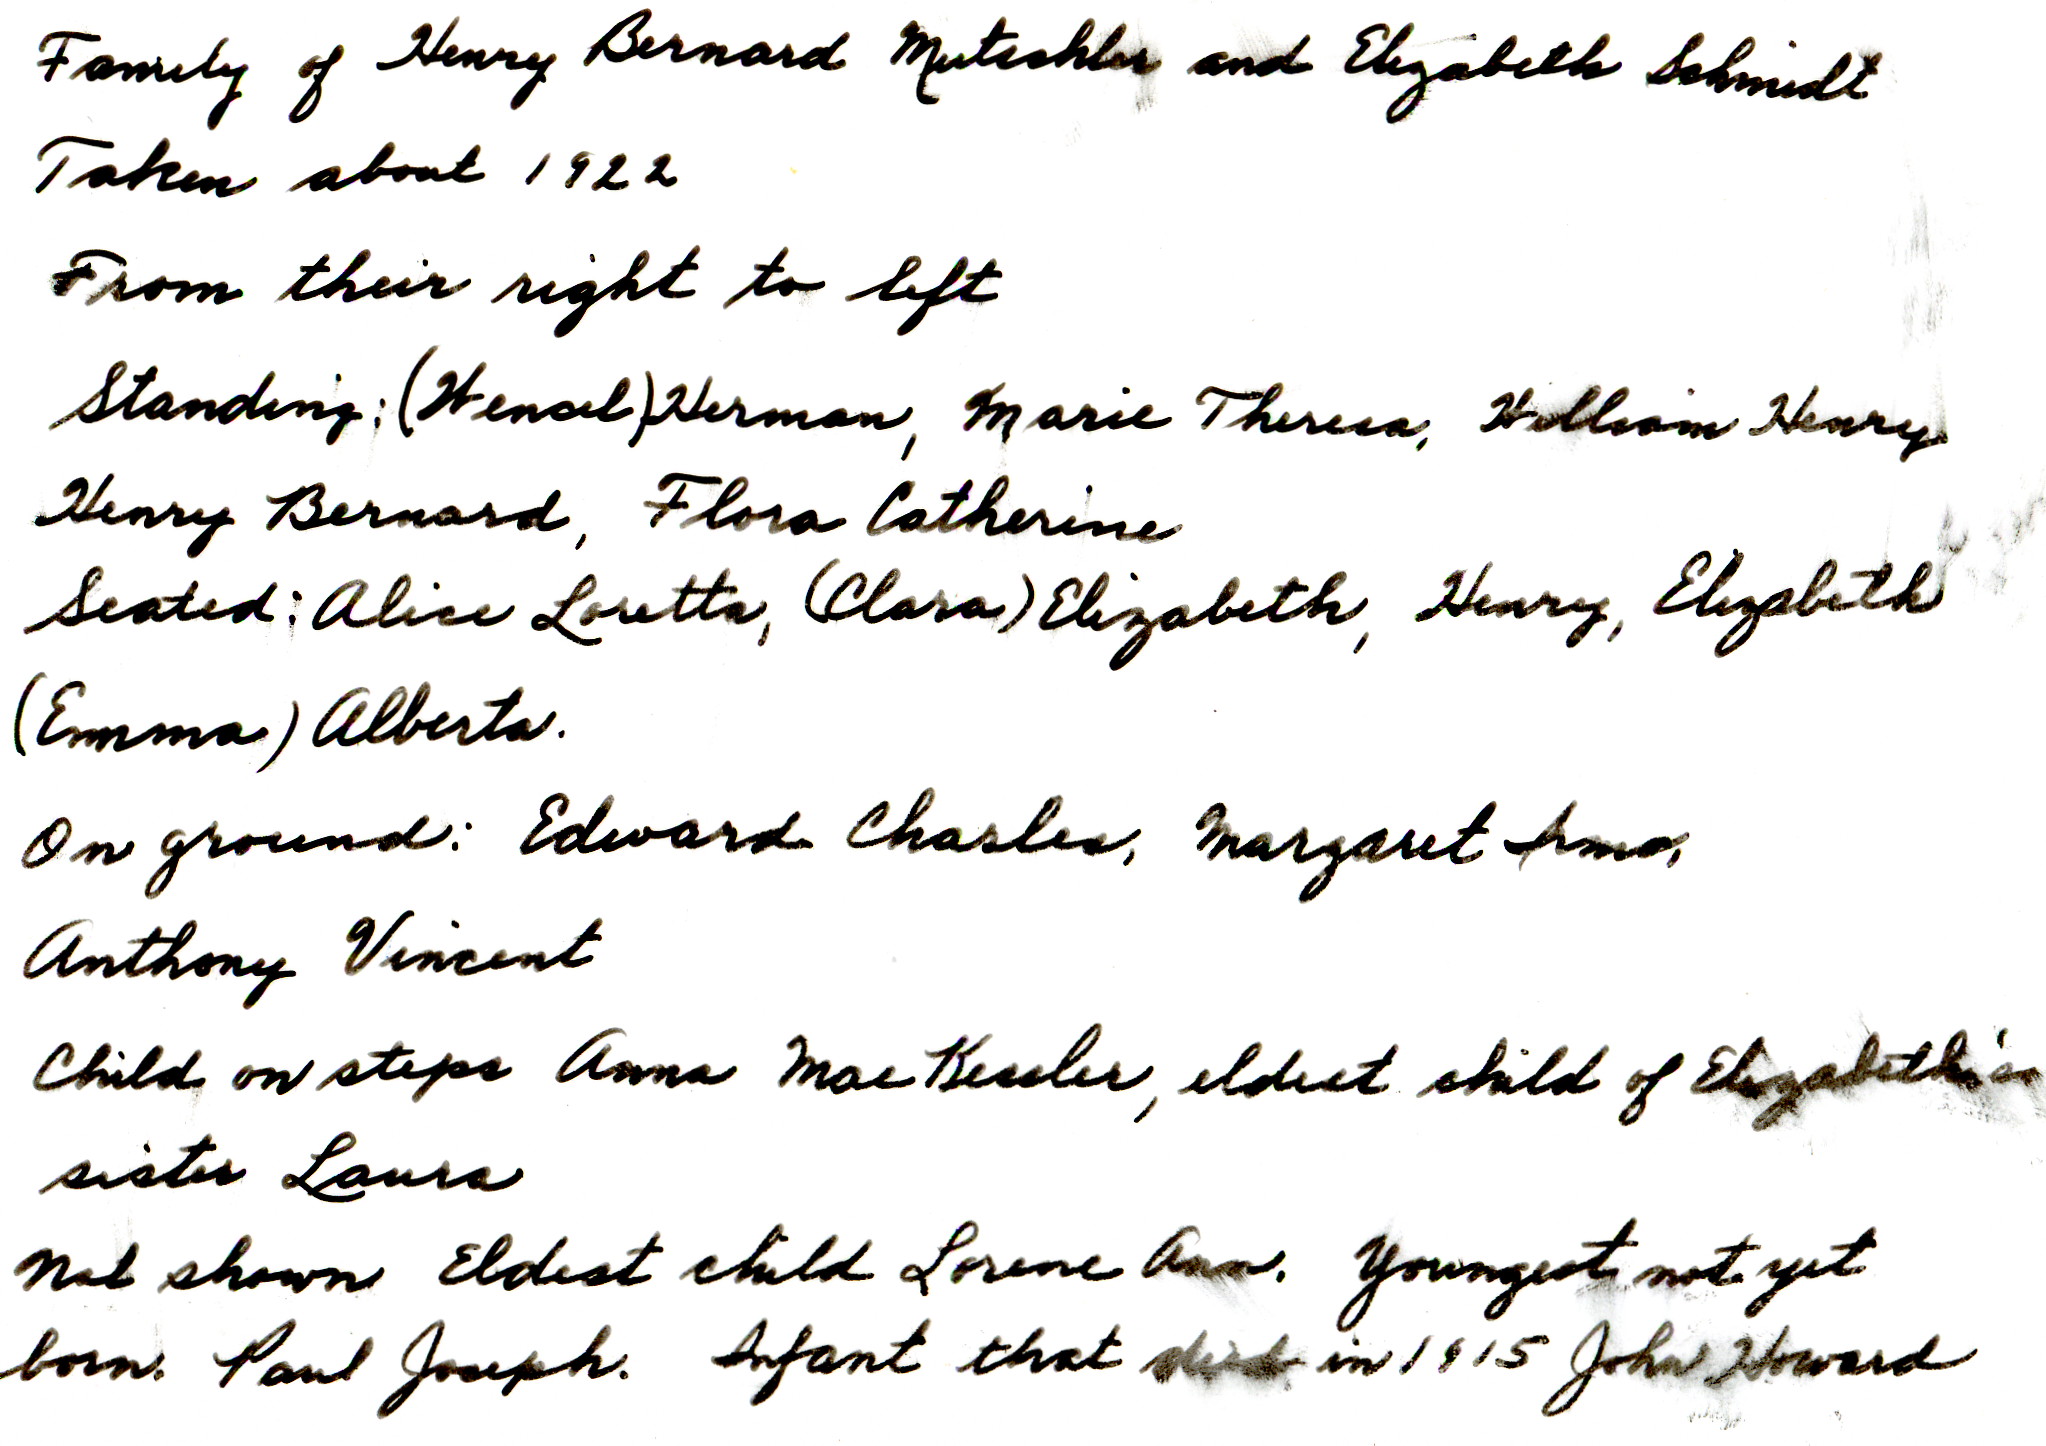 Family of Henry Bernard Mutschler and Elizabeth Schmidt
Taken about 1922
From their right to left
Standing: (Wencel) Herman, Marie Theresa, William Henry
Henry Bernard, Flora Catherine
Seated: Alice Loretta, (Clara) Elizabeth, Henry, Elizabeth
(Emma) Alberta.
On ground: Edward Charles, Margaret Irma,
Anthony Vincent
Child on steps Anna Mae Kessler, eldest child of Elizabeth's
sister Laura
Not shown Eldest child Lorene Ann. Youngest not yet
born: Paul Joseph. Infant that died in 1915 John Howard